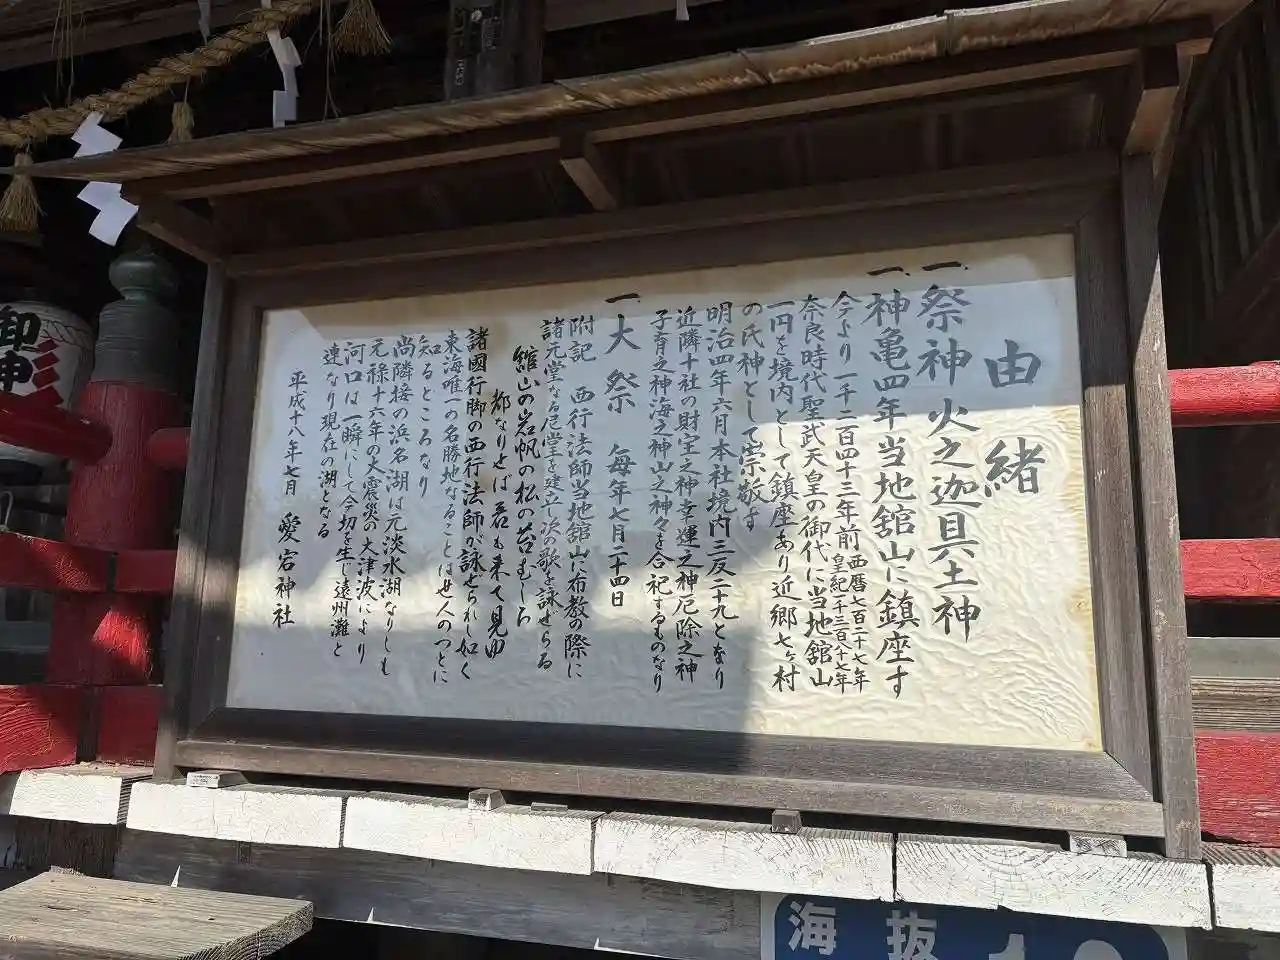 由緒
一、祭神 火之迦具土神
一、神亀四年当地舘山に鎮座す
今より一千二百四十三年前 西暦七百二十七年 皇紀千三百八十七年
奈良時代聖武天皇の御代に当地舘山
一円を境内として鎮座あり近郷七ヶ村
の氏神として崇敬す
明治四年六月本社境内三反二十九となり
近隣十社の財宝之神幸運之神厄除之神
子育之神海之神山之神々を合祀するものなり
一、大祭 毎年七月二十四日
附記 西行法師当地舘山に布教の際に
諸元堂なる厄堂を建立し次の歌を詠せらる
舘山の岩帆の松の苔むしろ
都なりせば君も来て見ゆ
諸國行脚の西行法師が詠ぜられし如く
東海唯一の名勝地なることは世人のつとに
知るところなり
尚隣接の浜名湖は元淡水湖なりしも
元禄十六年の大震災の大津波により
河口は一瞬にして今切を生じ遠州灘と
連なり現在の湖となる
平成十八年七月 愛宕神社
御神
海抜